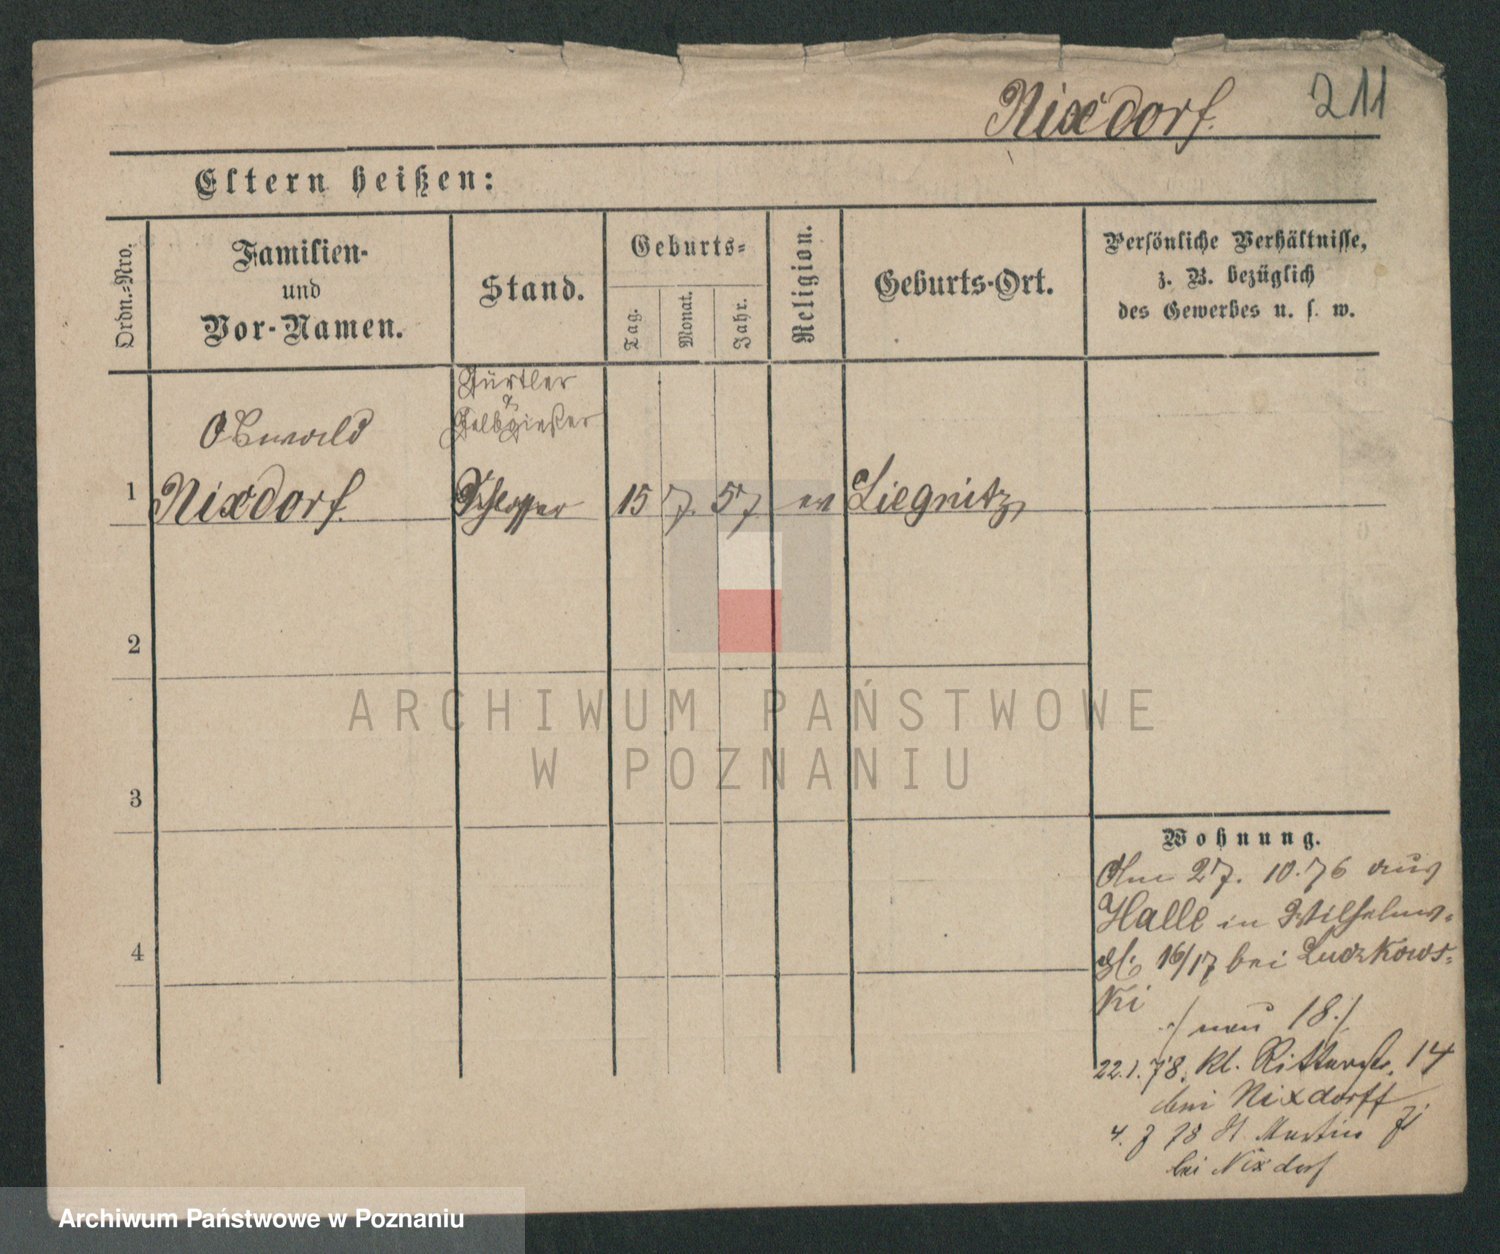 Nixdorf. 211
Eltern heißen:
Ordn.-Nro.
Familien-
und
Vor-Namen.
Stand.
Geburts-
Tag.
Monat.
Jahr.
Religion.
Geburts-Ort.
Persönliche Verhältnisse,
z. B. bezüglich
des Gewerbes u. s. w.
Gürtler
&
Gelbgießer
Oswald
1 Nixdorf. Schlosser 15 7. 57 ev Liegnitz
2
3
4
Wohnung.
27. 10. 76 aus
Halle in Wilhelms-
16/17 bei Ludzkows-
ki
./ neu 18 ./
22.1.78. kl. Ritterstr. 14
bei Nixdorff
4. 7 78 St Martin
bei Nixdorf
ARCHIWUM PAŃSTWOWE
W POZNANIU
Archiwum Państwowe w Poznaniu